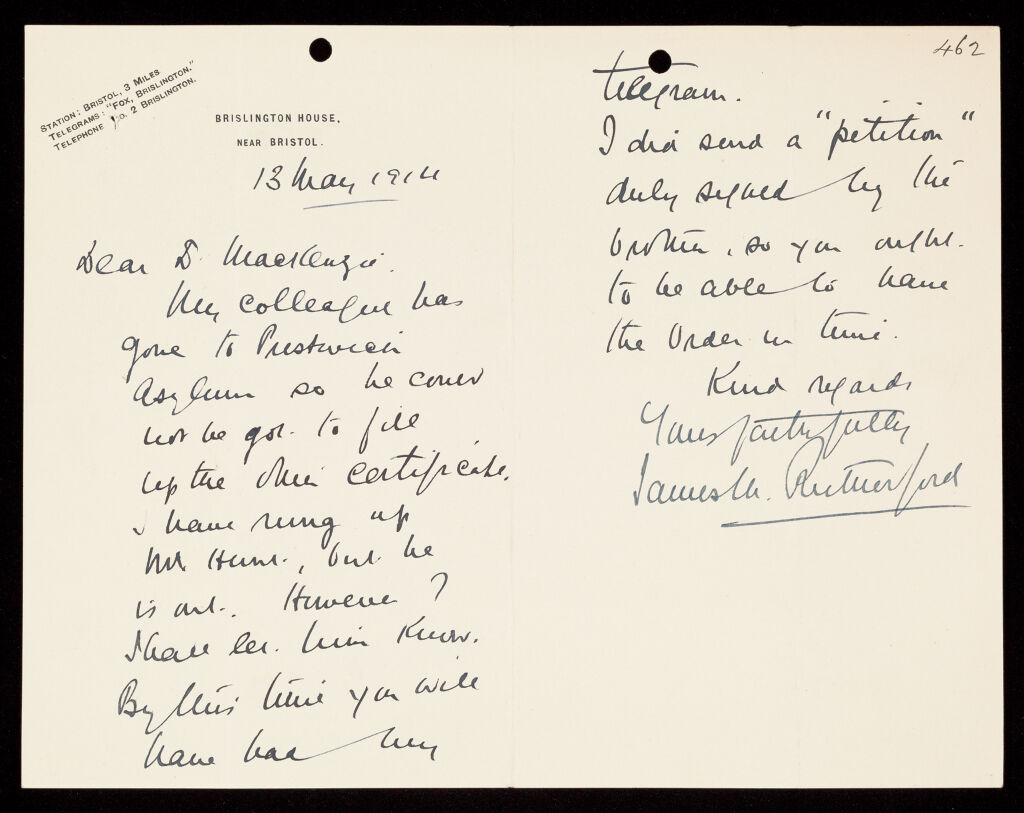 462
STATION: BRISTOL, 3 MILES
TELEGRAMS: "FOX, BRISLINGTON."
TELEPHONE No. 2 BRISLINGTON.
BRISLINGTON HOUSE,
NEAR BRISTOL.
13 May 1914
Dear Dr MacKenzie.
My colleague has
gone to Prestwich
Asylum so he could
not be got to fill
up the other certificate.
I have rung up
Mr Hunt, but he
is out. However I
shall let him know.
By this time you will
have had my
telegram.
I did send a "petition"
duly signed by the
brother, so you ought
to be able to have
the Order in time.
Kind regards
Yours faithfully
James M. Rutherford